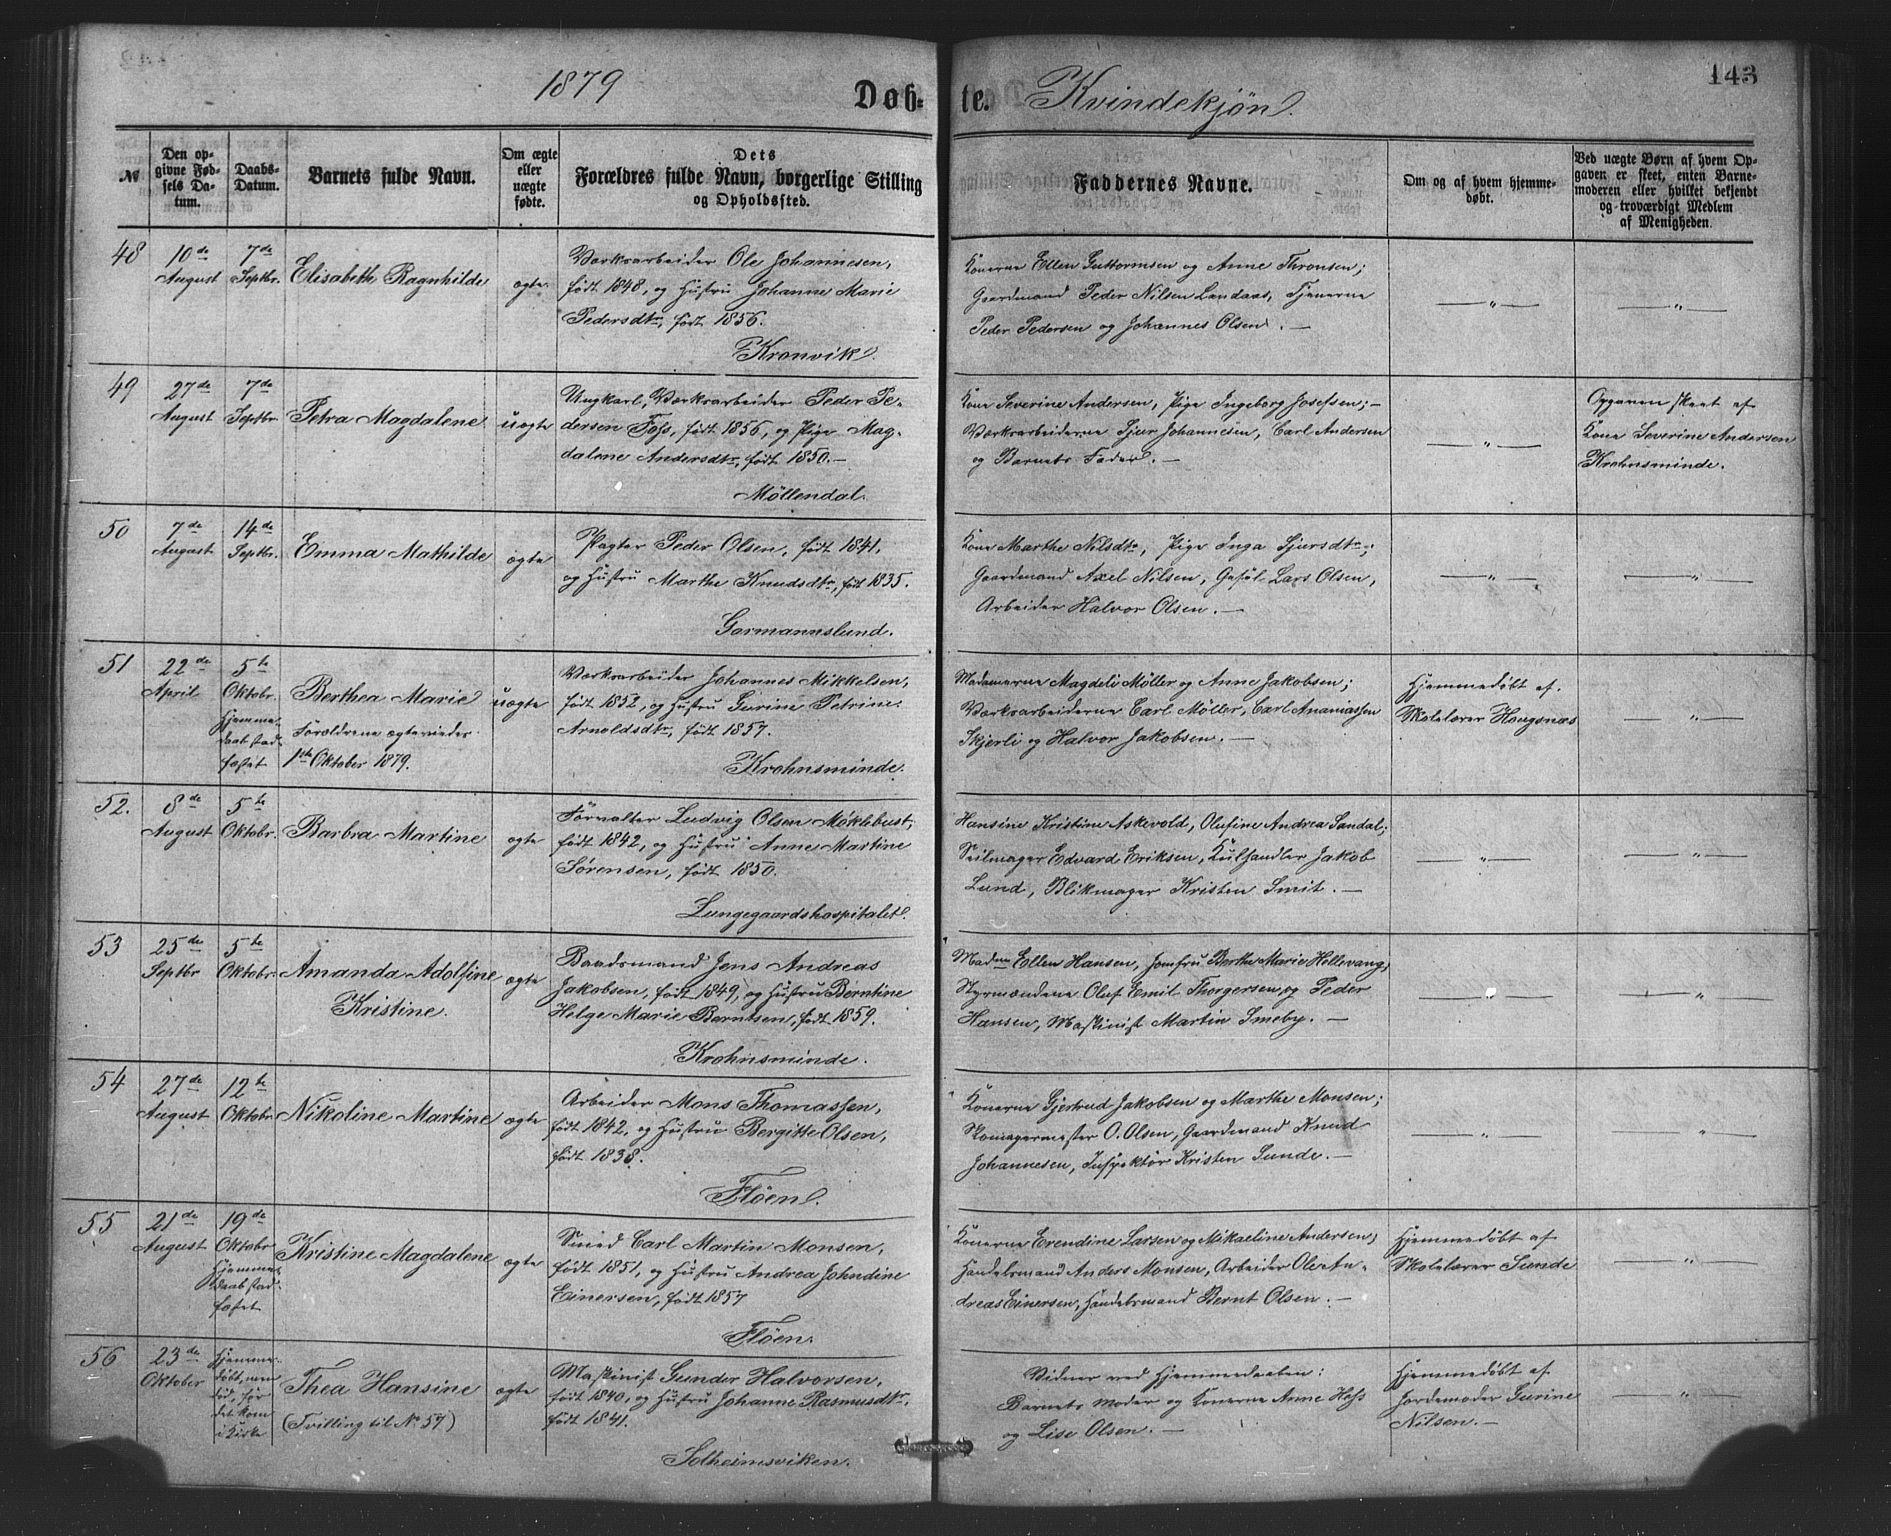 1879
Døb-
te.
Kvindekjøn.
143
№
Den op-
givne Fød-
sels Da-
tum.
Daabs-
Datum.
Barnets fulde Navn.
Om ægte
eller
uægte
fødte.
Dets
Forældres fulde Navn, borgerlige Stilling
og Opholdssted.
Faddernes Navne.
Om og af hvem hjemme-
døbt.
Ved uægte Børn af hvem Op-
gaven er skeet, enten Barne-
moderen eller hvilket bekjendt
og troværdigt Medlem
af Menigheden.
48
10de
August
7de
Septbr.
Elisabeth Ragnhilde
ægte
Værksarbeider Ole Johannesen,
født 1848, og Hustru Johanne Marie
Pedersdtr, født 1856.
Kronvik.
Konerne Ellen Guttormsen og Anne Thronsen;
Gaardmand Peder Nilsen Landaas, Tjenerne
Peder Pedersen og Johannes Olsen. —
— " —
— " —
49
27de
August
7de
Septbr.
Petra Magdalene
uægte
Ungkarl, Værksarbeider Peder Pe-
dersen Foss, født 1856, og Pige Mag-
dalene Andersdtr, født 1850. —
Møllendal.
Kone Severine Andersen, Pige Ingeborg Josefsen; —
Værksarbeiderne Sjur Johannesen, Carl Andersen
og Barnets Fader. —
— " —
Opgaven skeet af
Kone Severine Andersen
Krohnsminde.
50
7de
August
14de
Septbr.
Emma Mathilde
ægte
Pagter Peder Olsen, født 1841,
og Hustru Marthe Knudsdtr, født 1835.
Gormannslund.
Kone Marthe Nilsdtr, Pige Inga Sjursdtr;
Gaardmand Axel Nilsen, Gaful. Lars Olsen,
Arbeider Halvor Olsen. —
— " —
— " —
51
22de
April
5te
Oktobr.
Hjemme-
daab stad-
fæstet
Berthea Marie
Forældrene ægteviedes
1ste Oktober 1879.
uægte
Værksarbeider Johannes Mikkelsen,
født 1852, og Hustru Gurine Petrine
Arnoldsdtr, født 1857.
Krohnsminde.
Madamerne Magdeli Møller og Anne Jakobsen;
Værksarbeiderne Carl Møller, Carl Ananiassen
Skjerli og Halvor Jakobsen. —
Hjemmedøbt af
Skolelærer Hougsnæs
— " —
52.
8de
August
5te
Oktobr.
Barbra Martine
ægte
Forvalter Ludvig Olsen Møklebust,
født 1842, og Hustru Anne Martine
Sørensen, født 1850.
Lungegaardshospitalet.
Hansine Kristine Askevold, Olufine Andrea Sandal;
Seilmager Edvard Eriksen, Kulhandler Jakob
Lund, Blikmager Kristen Smit. —
— " —
— " —
53
25de
Septbr
5te
Oktobr.
Amanda Adolfine
Kristine.
ægte
Baadsmand Jens Andreas
Jakobsen, født 1849, og Hustru Berntine
Helge Marie Berntsen, født 1859.
Krohnsminde.
Madme Ellen Hansen, Jomfru Berthe Marie Hellevang;
Styrmændene Oluf Emil Thorgersen og Peder
Hansen, Maskinist Martin Smeby. —
— " —
— " —
54
27de
August
12te
Oktobr
Nikoline Martine
ægte
Arbeider Mons Thomassen,
født 1842, og Hustru Bergitte Olsen,
født 1838.
Fløen.
Konerne Gjertrud Jakobsen og Marthe Monsen;
Skomagermester O. Olsen, Gaardmand Knud
Johannesen, Inspektør Kristen Sunde. —
— " —
— " —
55
21de
August
19de
Oktobr
Hjemme-
daab stad-
fæstet
Kristine Magdalene
ægte
Smed Carl Martin Monsen,
født 1851, og Hustru Andrea Johndine
Einersen, født 1857
Fløen.
Konerne Erendine Larsen og Mikaeline Andersen;
Handelsmand Anders Monsen, Arbeider Ole An-
dreas Einersen, Handelsmand Bernt Olsen. —
Hjemmedøbt af
Skolelærer Sunde
— " —
56
23de
Oktober
Hjemme-
døbt, men
død, før
det kom
i Kirke
Thea Hansine
(Tvilling til No 57)
ægte
Maskinist Gunder Halvorsen,
født 1840, og Hustru Johanne Rasmusdtr,
født 1841.
Solheimsviken.
Vidner ved Hjemmedaaben:
Barnets Moder og Konerne Anne Hess
og Lise Olsen. —
Hjemmedøbt af
Jordemoder Gurine
Nilsen. —
— " —